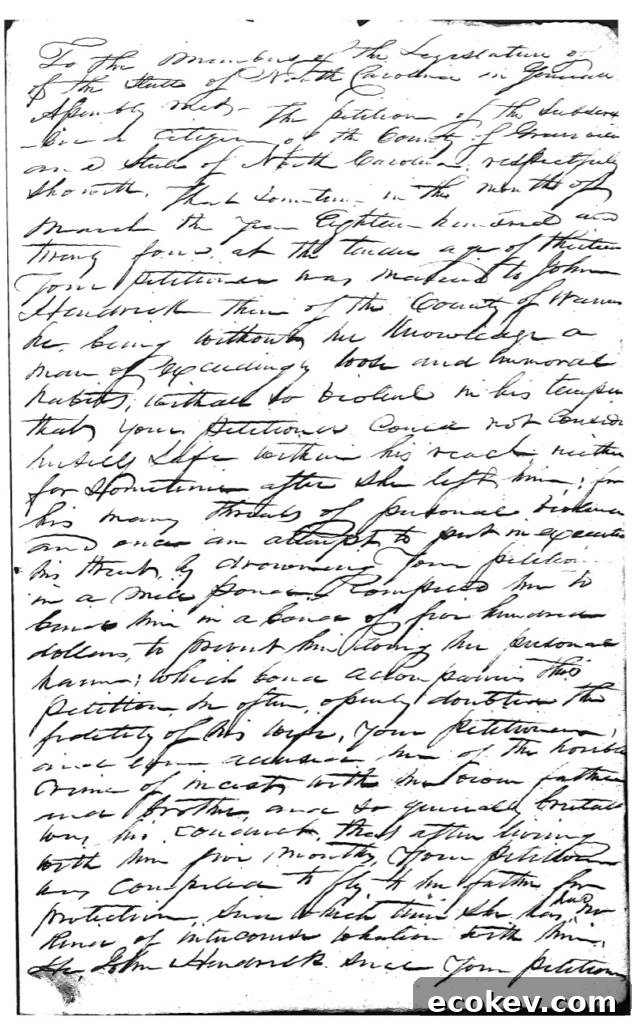 To the Members of the Legislature of
of the State of North Carolina in General
Assembly met - The petition of the Subscri
-ber a citizen of the County of Granville
and State of North Carolina, respectfully
Showeth, That Sometime in the month of
March the year Eighteen hundred and
twenty four, at the tender age of thirteen
Your Petitioner was married to John
Hendrick then of the County of Warren
he, being without her knowledge a
man of exceedingly loose and immoral
habits, withall so violent in his temper
that your petitioner could not consider
herself Safe within his reach neither
for Sometime after she left him; for
his many threats of personal violence
and once an attempt to put in execution
his threat, by drowning Your petition
in a mill pond, Compelled her to
bind him in a bond of five hundred
dollars, to prevent him doing her personal
harm; which bond accompanies this
Petition, he often, openly doubted the
fidelity of his wife, Your petitioner,
and even accused her of the horrible
crime of incest with her own father
and brother, and so generally brutal
was his conduct, that after living
with him five months, Your petitioner
was compelled to fly to her father for
protection, Since which time she has had no
kind of intercourse whatever with him.
He, John Hendrick since Your petitioner
ecokev.com